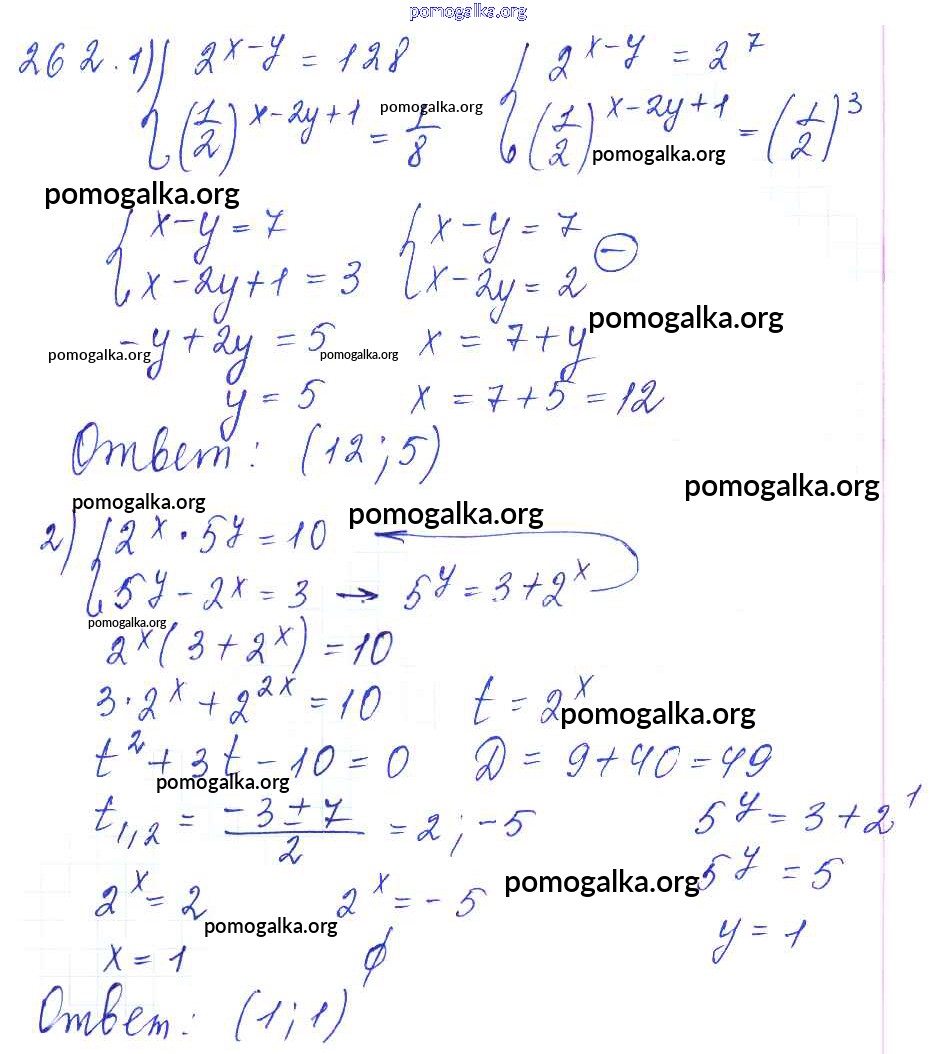 pomogalka.org
262. 1) { 2^(x-y) = 128 { 2^(x-y) = 2^7
(1/2)^(x-2y+1) = 1/8 (1/2)^(x-2y+1) = (1/2)^3
pomogalka.org
pomogalka.org
pomogalka.org
{ x-y = 7 { x-y = 7
x-2y+1 = 3 x-2y = 2 ⊖
pomogalka.org
-y+2y = 5 x = 7+y
pomogalka.org pomogalka.org
y = 5 x = 7+5 = 12
Ответ: (12; 5)
pomogalka.org
pomogalka.org
pomogalka.org
2) { 2^x · 5^y = 10
5^y - 2^x = 3 → 5^y = 3+2^x
pomogalka.org
2^x(3+2^x) = 10
3·2^x + 2^(2x) = 10 t = 2^x
pomogalka.org
t^2 + 3t - 10 = 0 D = 9+40 = 49
pomogalka.org
t_1,2 = (-3 ± 7)/2 = 2; -5 5^y = 3+2^1
5^y = 5
pomogalka.org
2^x = 2 2^x = -5
pomogalka.org
y = 1
x = 1 ∅
Ответ: (1; 1)